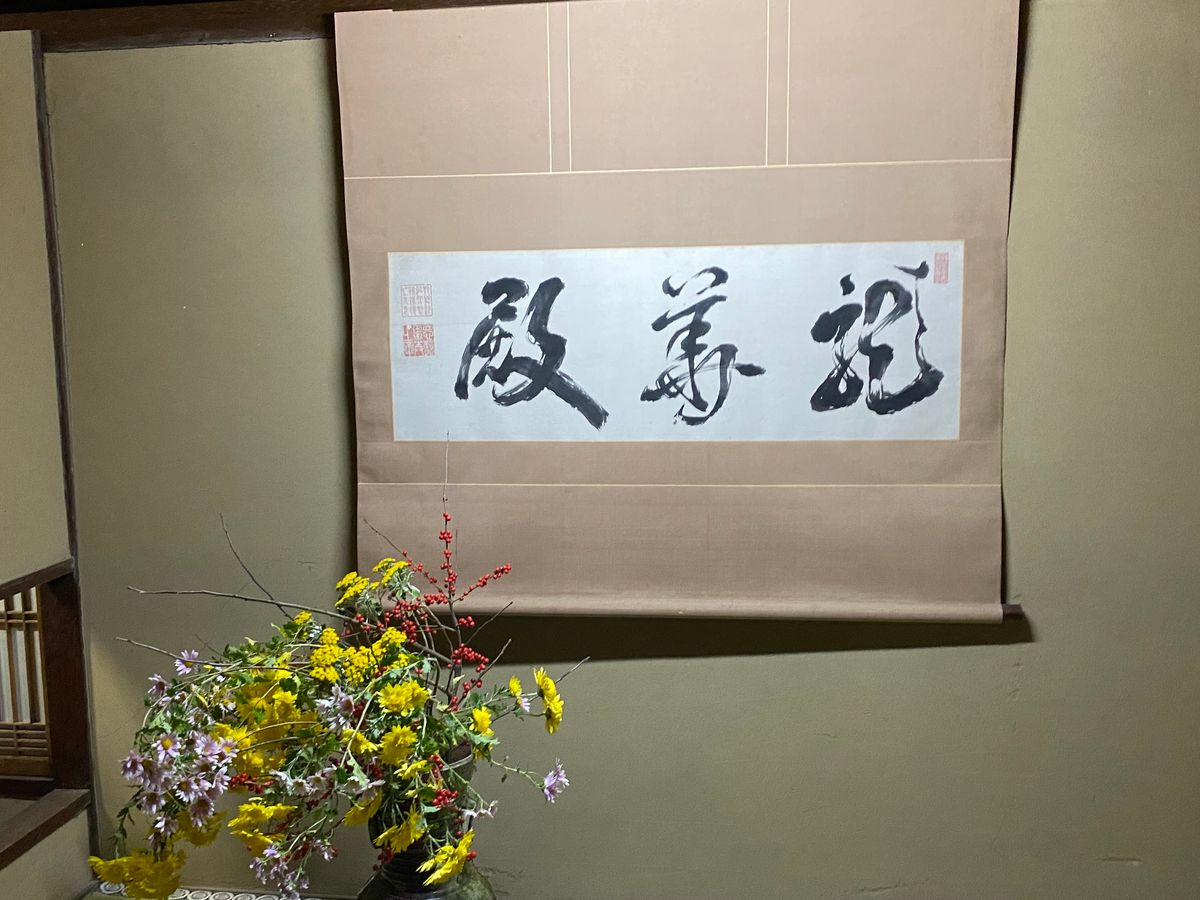 龍華殿